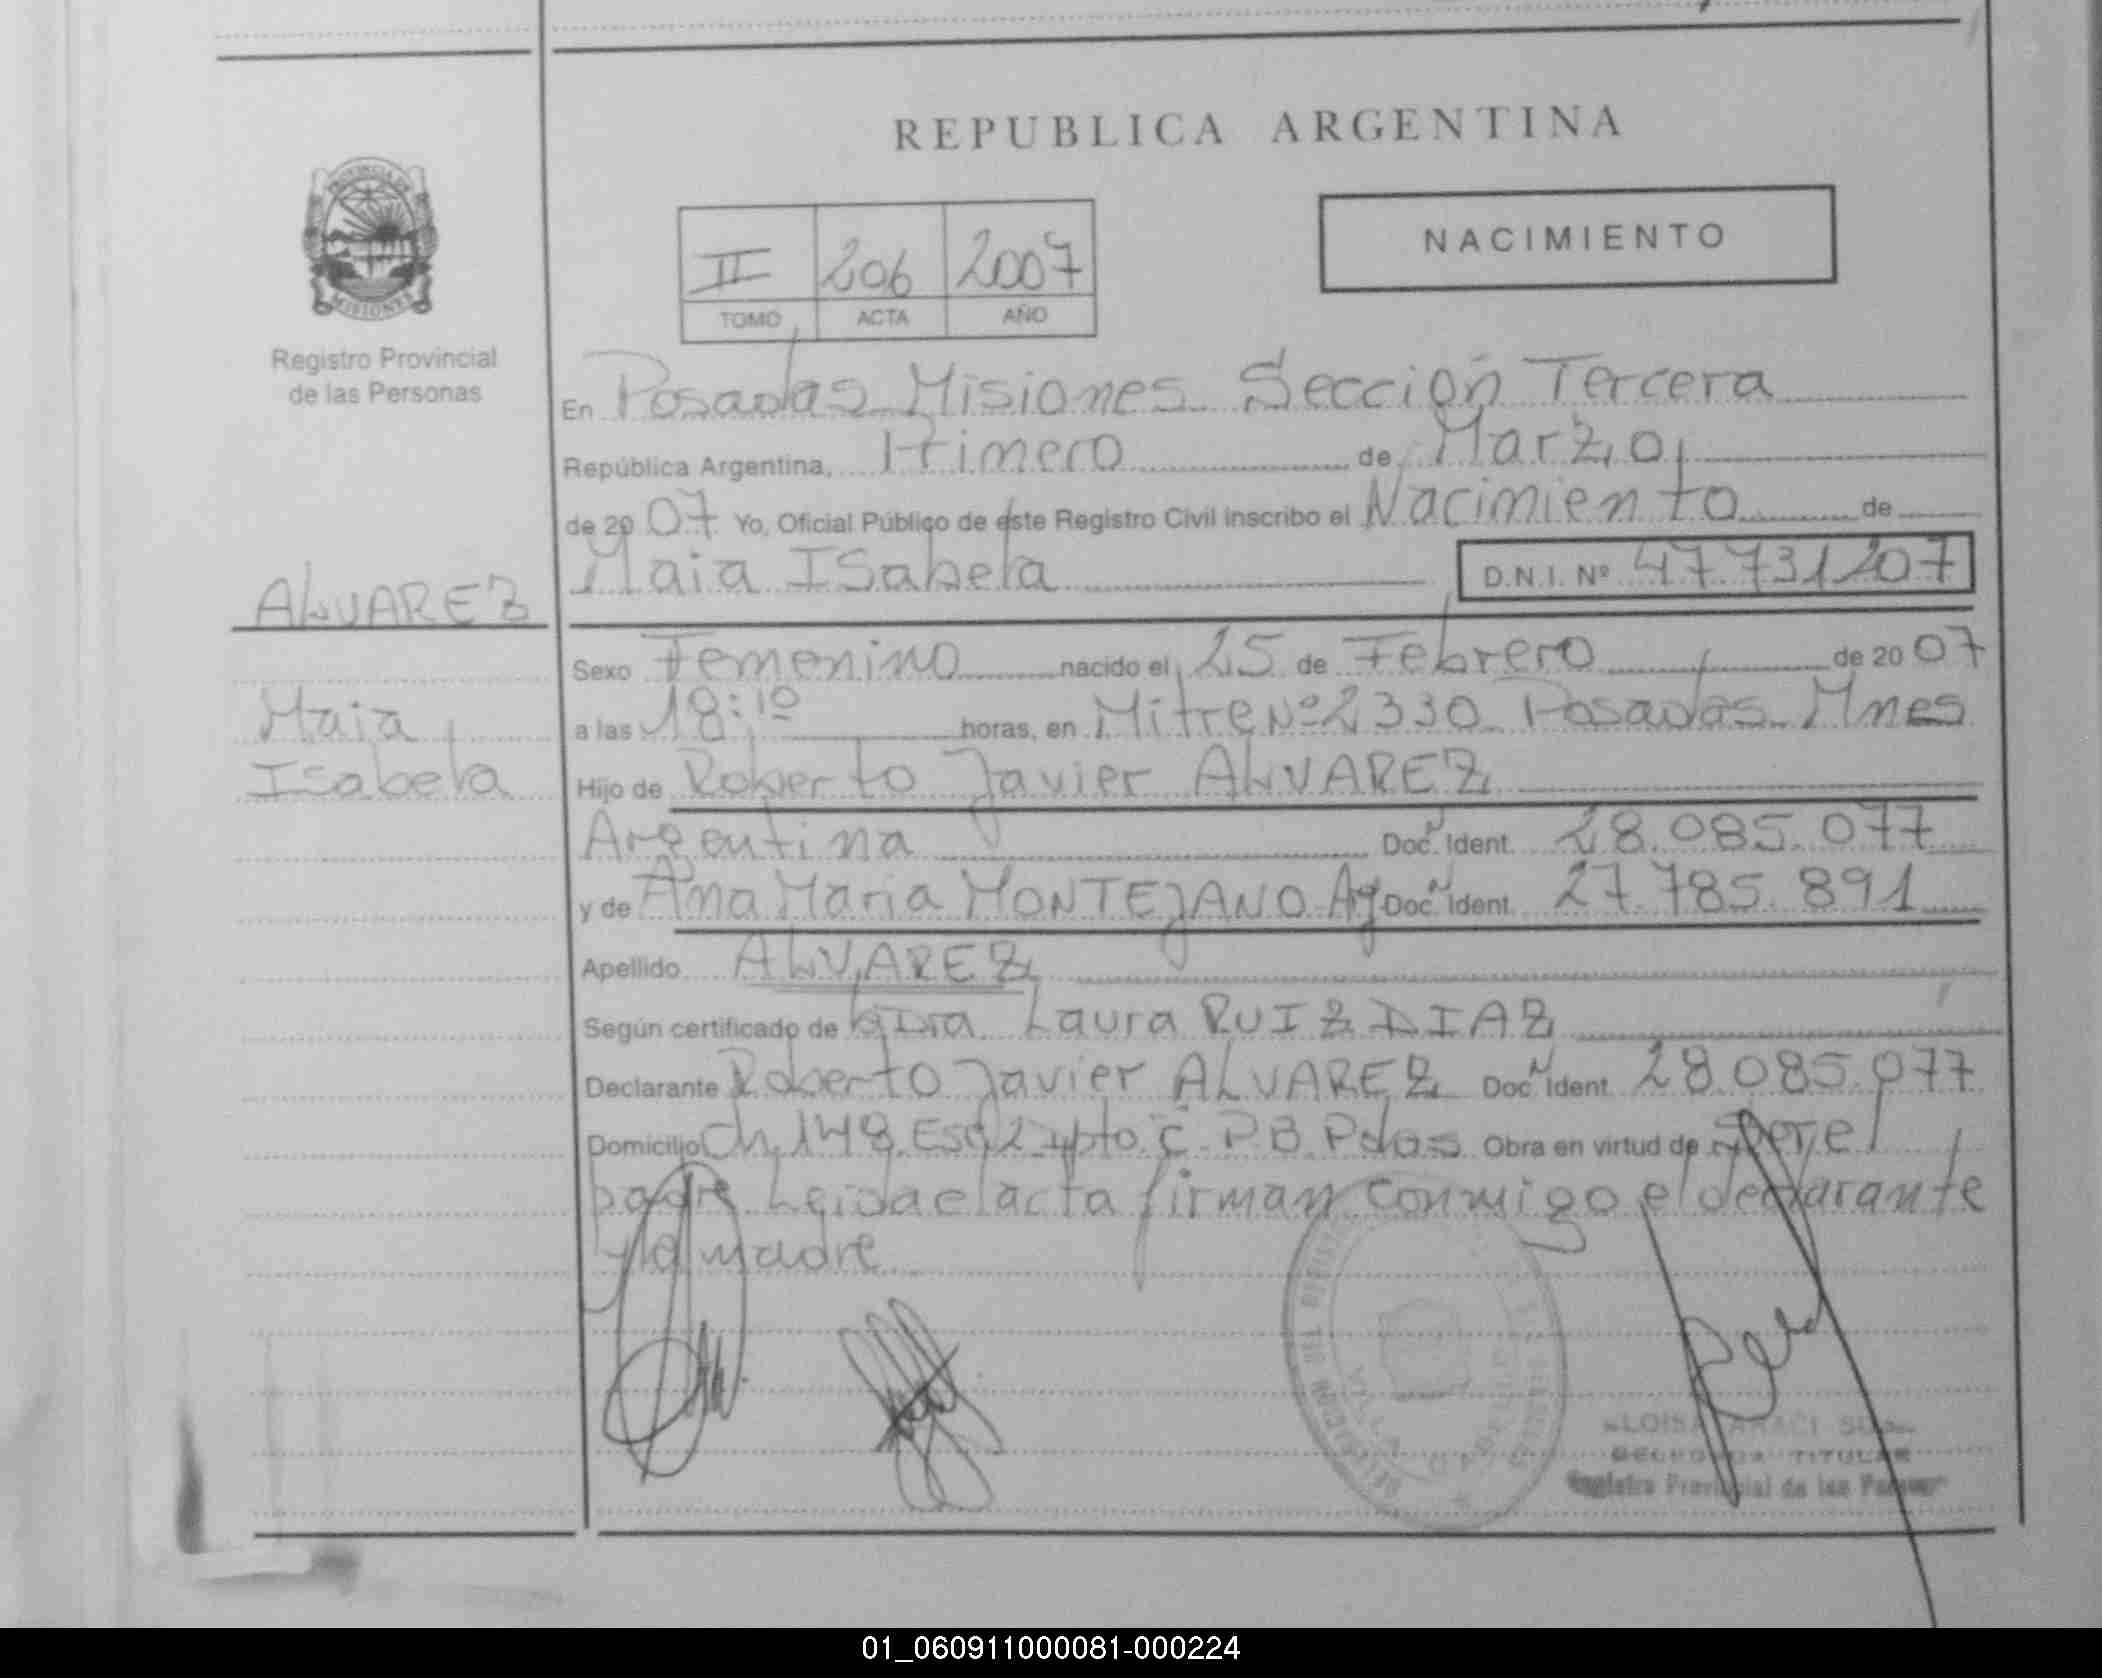 REPUBLICA ARGENTINA
PROVINCIA DE
MISIONES
Registro Provincial
de las Personas
II 206 2007
TOMO ACTA AÑO
NACIMIENTO
En Posadas Misiones Sección Tercera
República Argentina, Primero de Marzo
de 2007 Yo, Oficial Público de este Registro Civil inscribo el Nacimiento de
Maia ISabela D.N.I. Nº 47731207
ALVAREZ
Sexo Femenino nacido el 25 de Febrero de 2007
Maia
a las 18:10 horas, en Mitre Nº 2330 Posadas Mnes
Isabela
Hijo de Roberto Javier ALVAREZ
Argentina Doc. Ident. 28.085.077
y de Ana Maria MONTEJANO Ag Doc. Ident. 27.785.891
Apellido ALVAREZ
Según certificado de la Dra Laura RUIZ DIAZ
Declarante Roberto Javier ALVAREZ Doc. Ident. 28.085.077
Domicilio Ch 148 Esc 2 Dpto C P.B. Pdas Obra en virtud de Ser el
padre Leida el acta firman conmigo el declarante
y la madre
DELEGACION DEL REGISTRO
VILLA
TITULAR
Registro Provincial de las
01_060911000081-000224